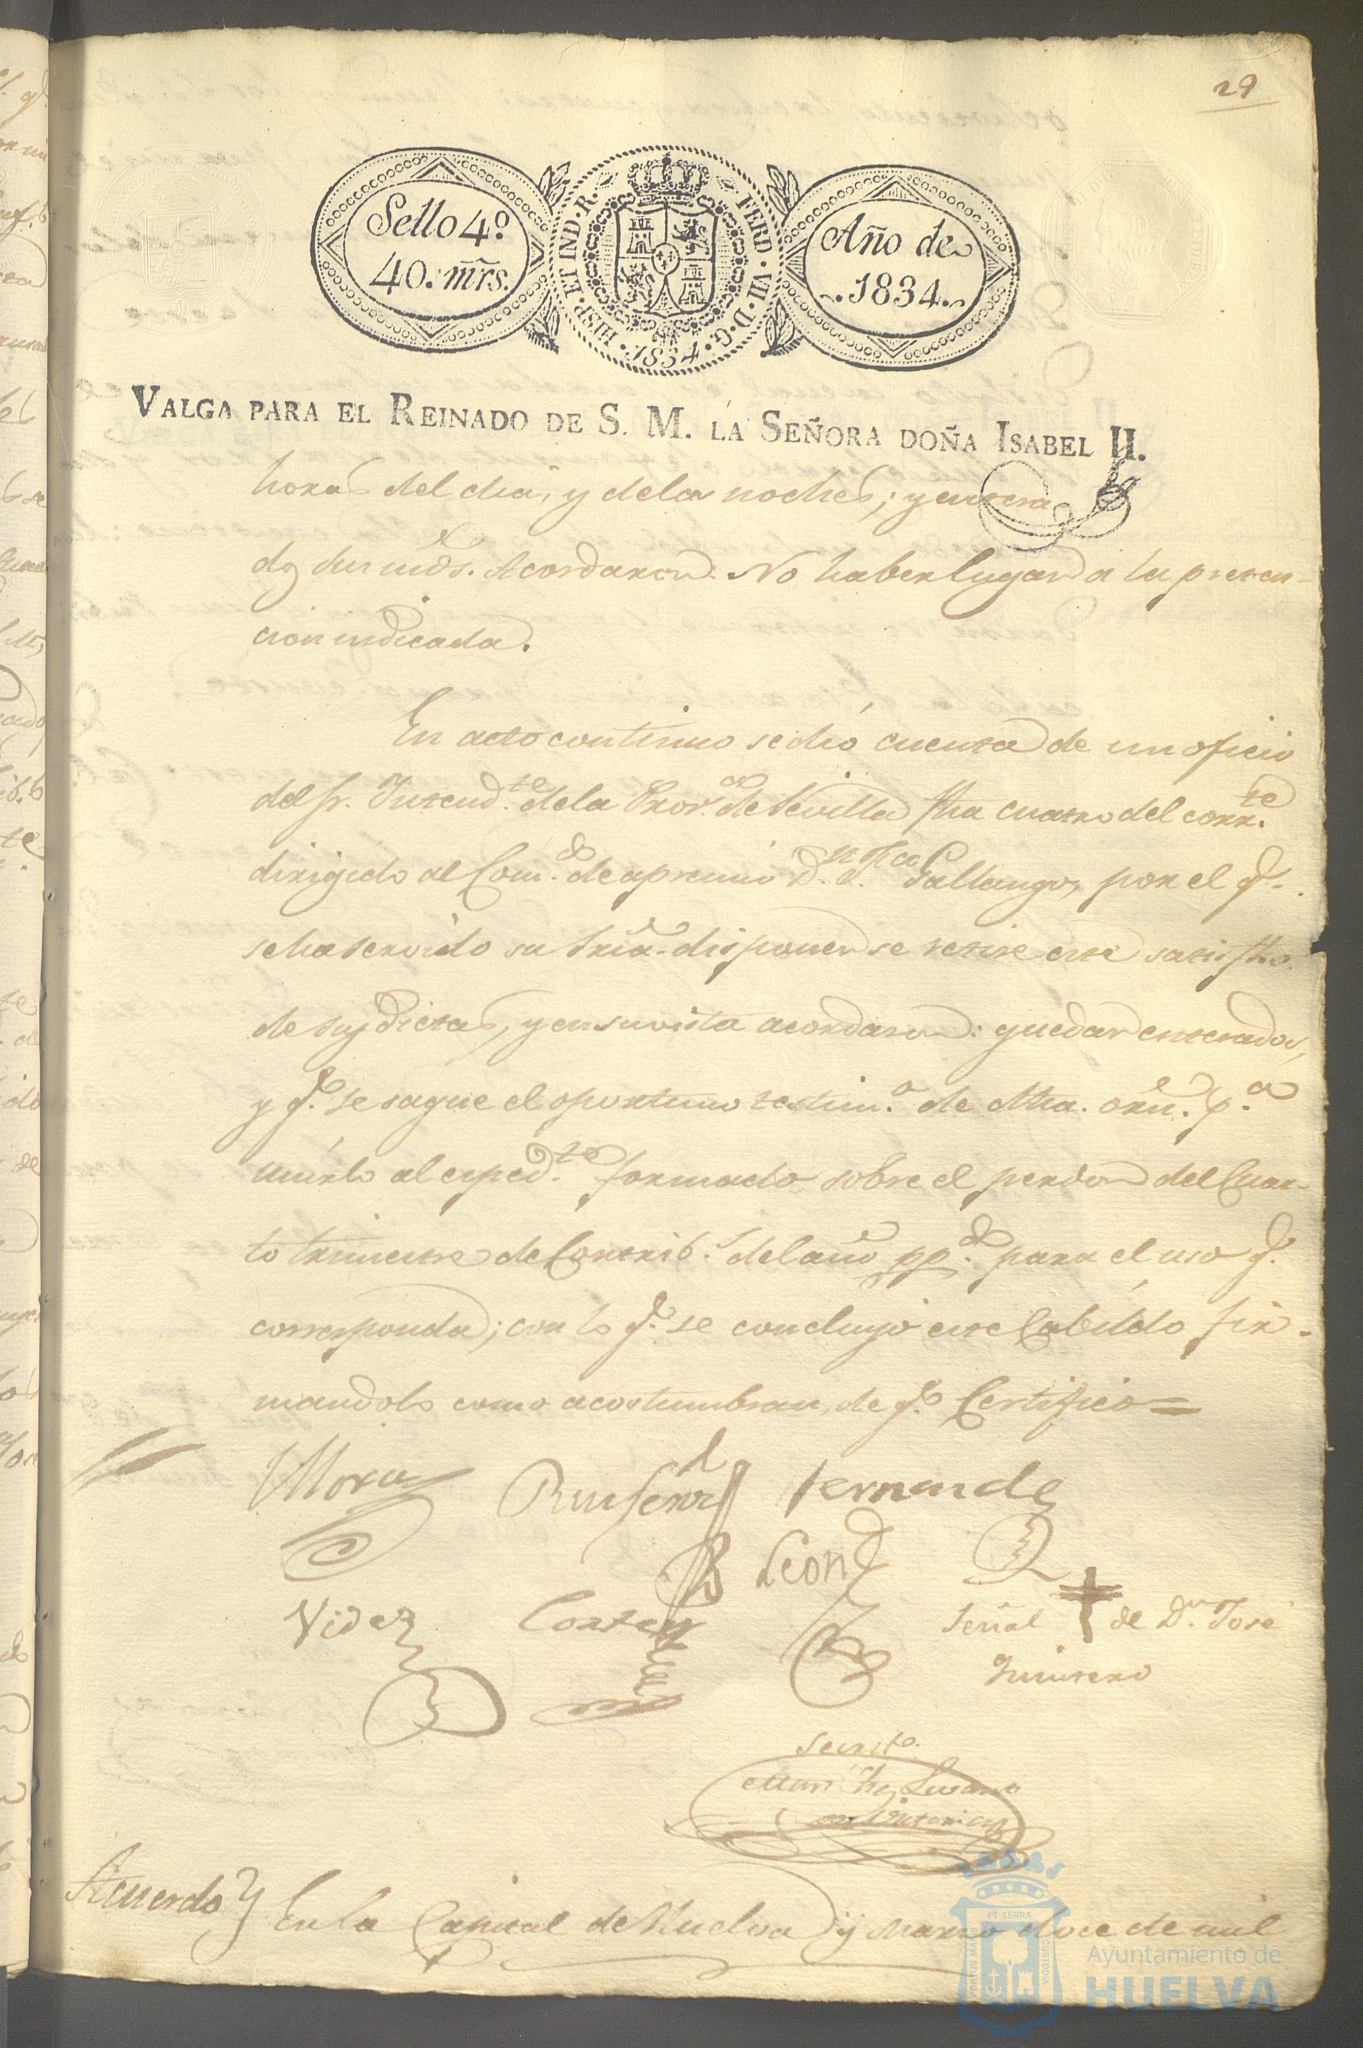 29
Sello 4º
40. mrs.
HISP. ET IND. R. FERD. VII. D. G. 1834.
Año de
1834.
VALGA PARA EL REINADO DE S. M. LA SEÑORA DOÑA ISABEL II.
horas del dia, y dela noches; y entera
dos sus mds. Acordaron: No haber lugar a la preten-
cion indicada.
En acto continuo se dió cuenta de un oficio
del Sr. Intendte. dela Prova. de Sevilla fha cuatro del corrte.
dirigido al Comdo. de apremio Dn. Gallango, por el q.
se ha servido su Sría. disponer se retire este satisfho.
de sus dietas, y en su vista acordaron: quedar enterados,
y q.e se saque el oportuno testimo. de dha. orn. pa.
unirlo al espedte. formado sobre el perdon del Cuar-
to trimestre de Contribs. del año ppdo. para el uso q.e
corresponda; con lo q.e se concluyó este Cabildo fir-
mandolo como acostumbran, de q.e Certifico=
Mora Fernandez
Leon
Videz Cortes Señal de Dn. José
Quintero
Secreto.
Acuerdo En la Capital de Huelva y Marzo doce de mil
PORTUS MARIS ET TERRÆ CUSTODIA
Ayuntamiento de
HUELVA